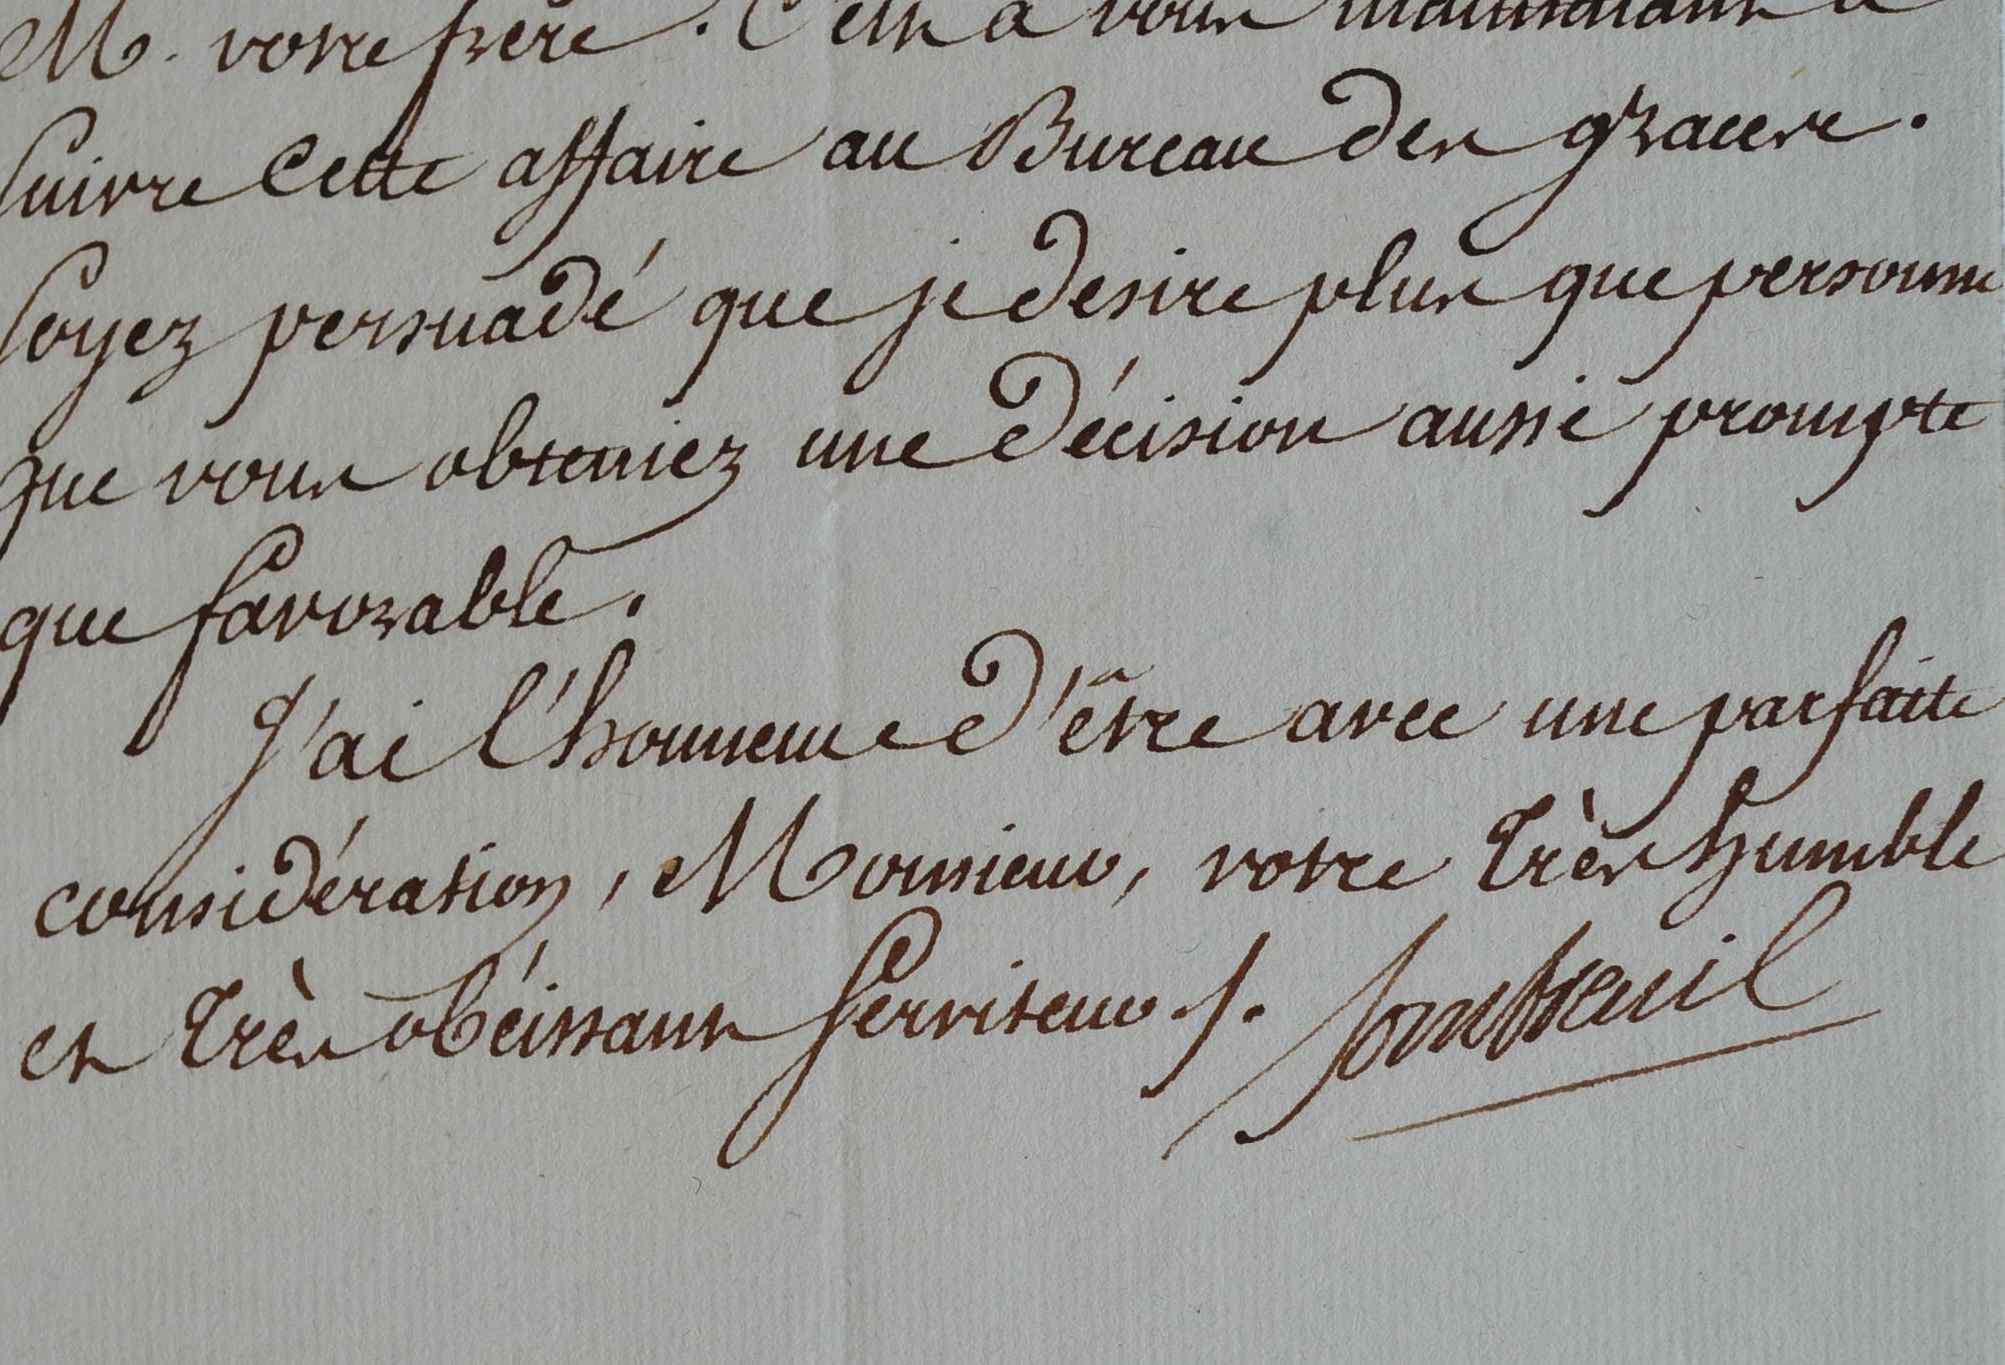 M. votre frere. C'est à vous maintenant à
suivre cette affaire au Bureau des graces.
Soyez persuadé que je desire plus que personne
que vous obteniez une décision aussi prompte
que favorable.
J'ai l'honneur d'être avec une parfaite
considération, Monsieur, votre très humble
et très obéissant serviteur ./.